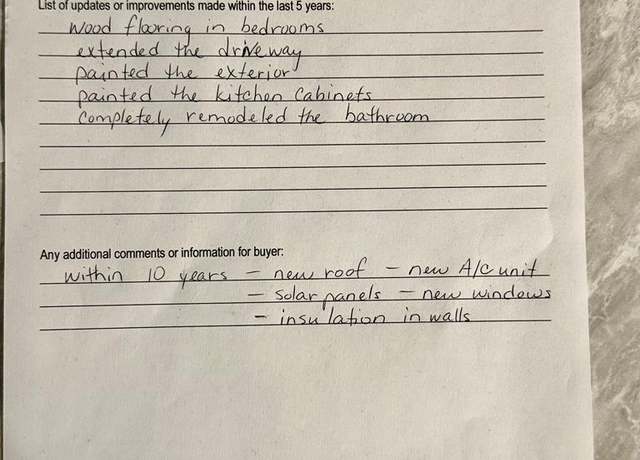 List of updates or improvements made within the last 5 years:
wood flooring in bedrooms
extended the driveway
painted the exterior
painted the kitchen cabinets
completely remodeled the bathroom
Any additional comments or information for buyer:
within 10 years - new roof - new A/C unit
- solar panels - new windows
- insulation in walls